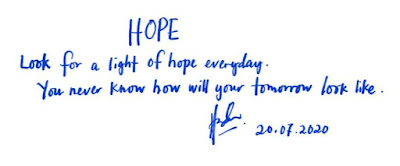 HOPE
Look for a light of hope everyday.
You never know how will your tomorrow look like.
20.07.2020